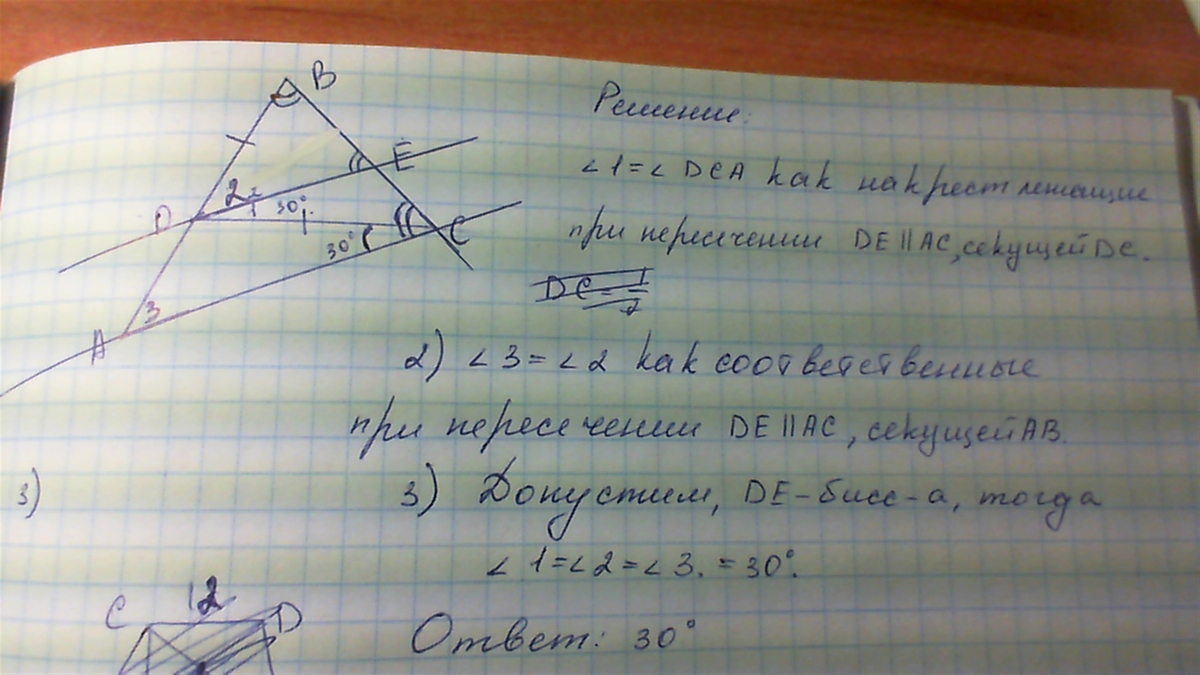 B
Решение:
E
∠1=∠DCA как накрест лежащие
D 2 30°
30° C
при пересечении DE||AC, секущей DC.
DC=1/2
A 3
2) ∠3=∠2 как соответственные
при пересечении DE||AC, секущей AB.
3)
3) Допустим, DE-бисс-а, тогда
∠1=∠2=∠3.=30°.
C 12 D
Ответ: 30°